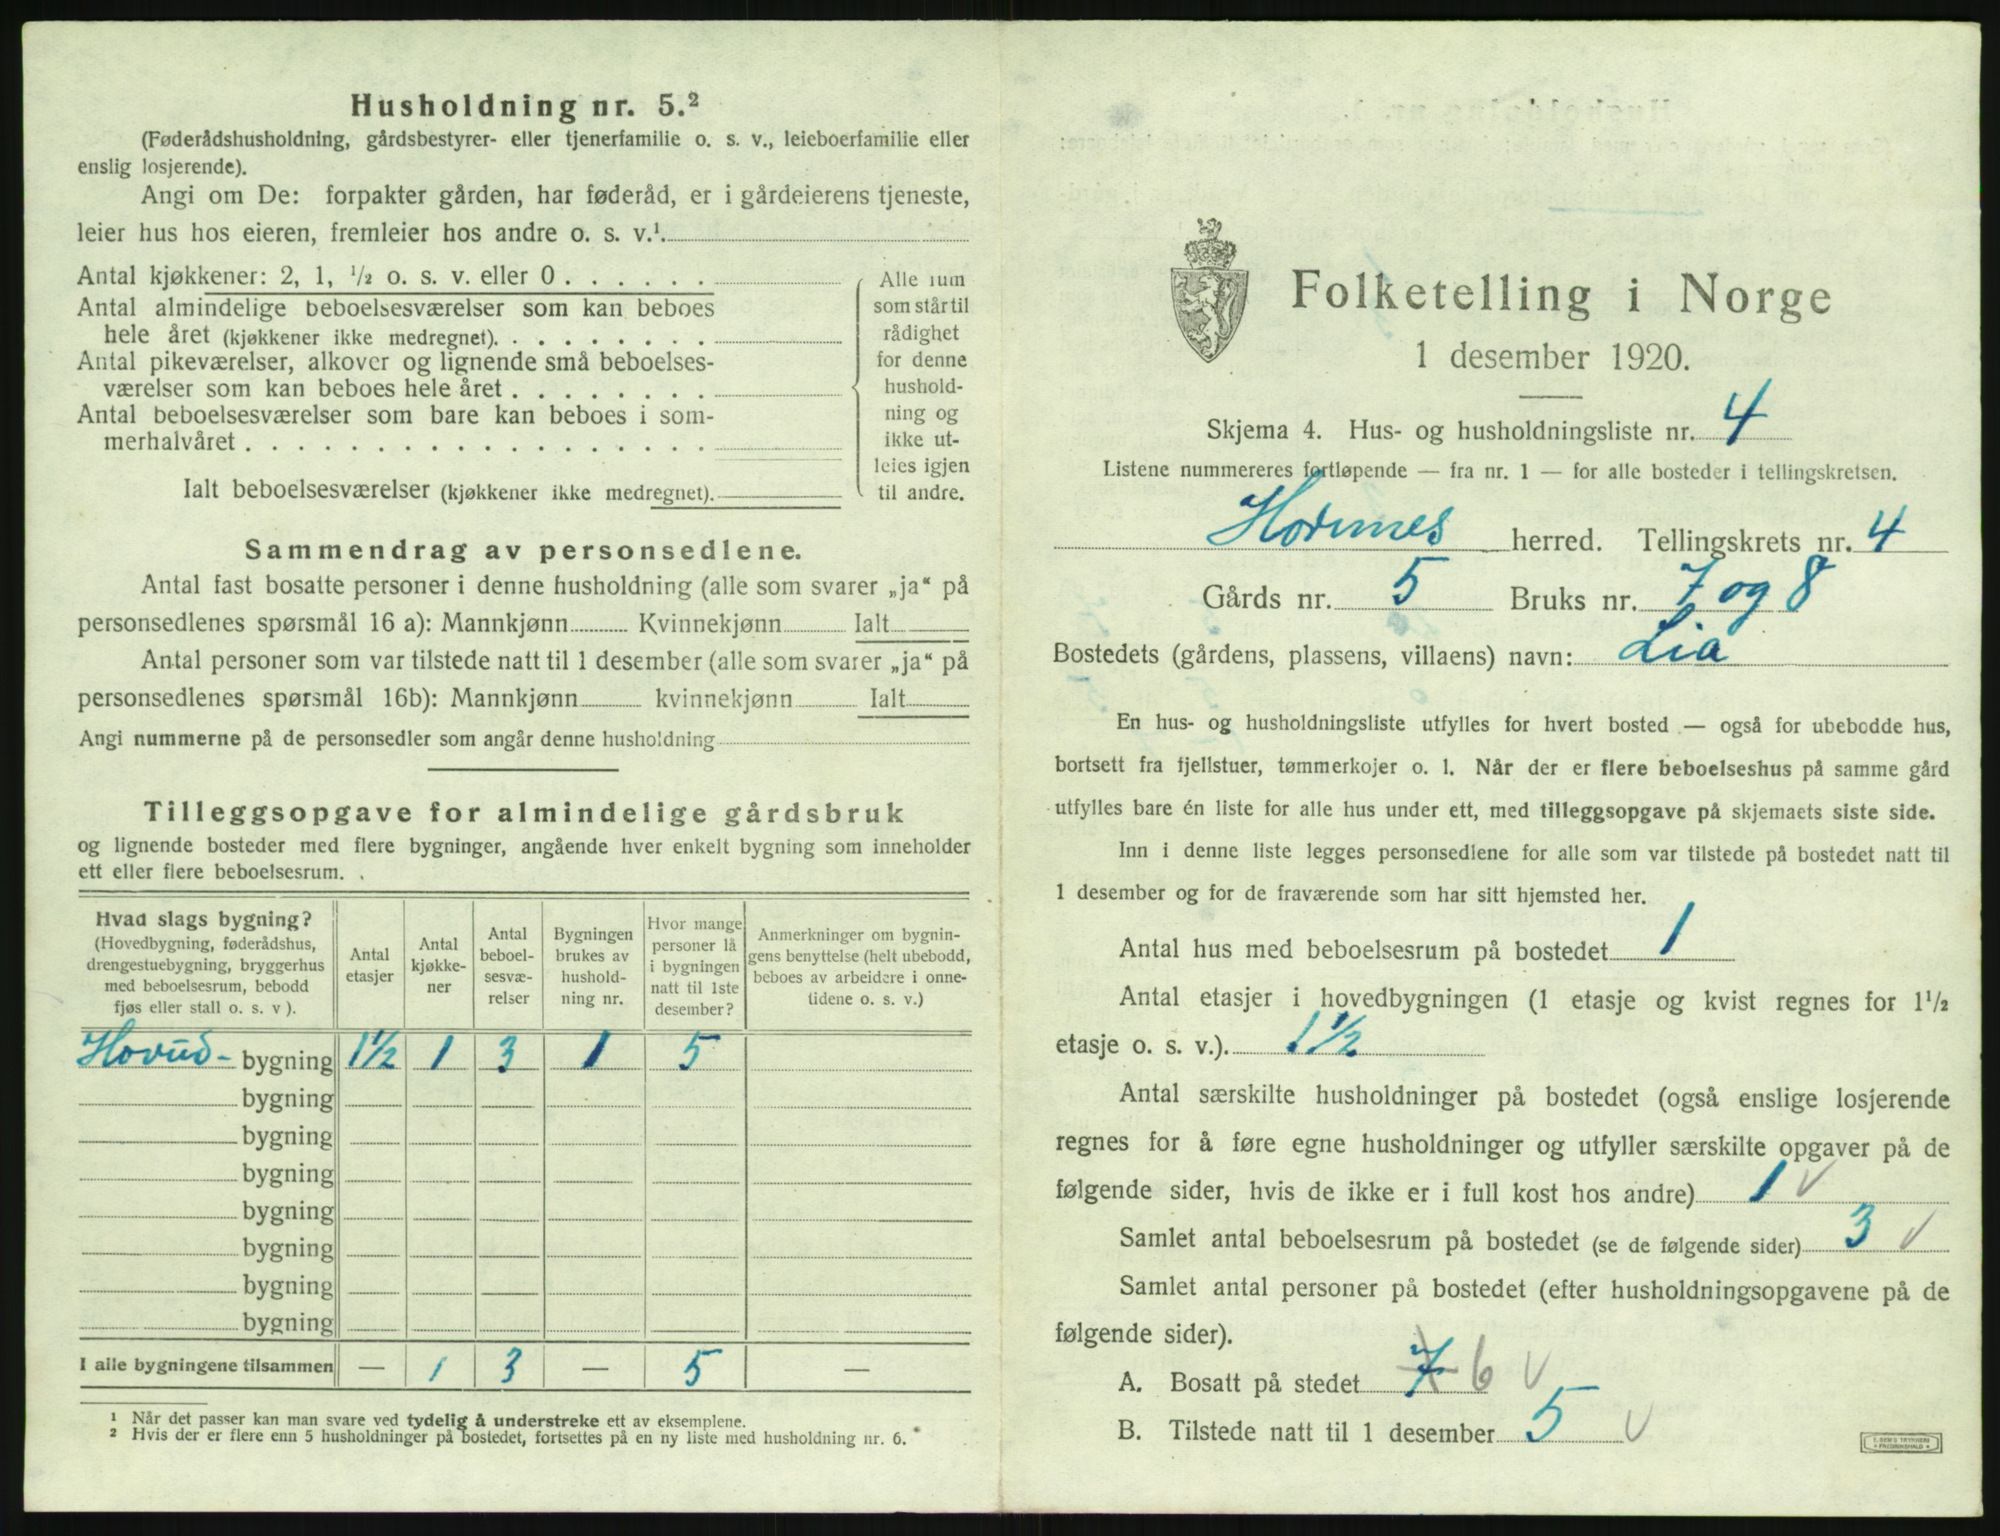 Husholdning nr. 5.²
(Føderådshusholdning, gårdsbestyrer- eller tjenerfamilie o. s. v., leieboerfamilie eller
enslig losjerende).
Angi om De: forpakter gården, har føderåd, er i gårdeierens tjeneste,
leier hus hos eieren, fremleier hos andre o. s. v.¹.
Antal kjøkkener: 2, 1, ½ o. s. v. eller 0 . . . . . .
Antal almindelige beboelsesværelser som kan beboes
hele året (kjøkkener ikke medregnet). . . . . . . . .
Antal pikeværelser, alkover og lignende små beboelses-
værelser som kan beboes hele året . . . . . . . .
Antal beboelsesværelser som bare kan beboes i som-
merhalvåret . . . . . . . . . . . . . . . . . .
Ialt beboelsesværelser (kjøkkener ikke medregnet).
Alle rum
som står til
rådighet
for denne
hushold-
ning og
ikke ut-
leies igjen
til andre.
Sammendrag av personsedlene.
Antal fast bosatte personer i denne husholdning (alle som svarer „ja“ på
personsedlenes spørsmål 16 a): Mannkjønn Kvinnekjønn Ialt
Antal personer som var tilstede natt til 1 desember (alle som svarer „ja“ på
personsedlenes spørsmål 16b): Mannkjønn kvinnekjønn Ialt
Angi nummerne på de personsedler som angår denne husholdning
Tilleggsopgave for almindelige gårdsbruk
og lignende bosteder med flere bygninger, angående hver enkelt bygning som inneholder
ett eller flere beboelsesrum. .
Hvad slags bygning?
(Hovedbygning, føderådshus,
drengestuebygning, bryggerhus
med beboelsesrum, bebodd
fjøs eller stall o. s. v ).
Antal
etasjer
Antal
kjøkke-
ner
Antal
beboel-
sesvæ-
relser
Bygningen
brukes av
hushold-
ning nr.
Hvor mange
personer lå
i bygningen
natt til 1ste
desember?
Anmerkninger om bygnin-
gens benyttelse (helt ubebodd,
beboes av arbeidere i onne-
tidene o. s. v.)
Hovud- bygning 1½ 1 3 1 5
bygning
bygning
bygning
bygning
bygning
bygning
bygning
I alle bygningene tilsammen — 1 3 — 5 —
¹ Når det passer kan man svare ved tydelig å understreke ett av eksemplene.
² Hvis der er flere enn 5 husholdninger på bostedet, fortsettes på en ny liste med husholdning nr. 6.
Folketelling i Norge
1 desember 1920.
Skjema 4. Hus- og husholdningsliste nr. 4
Listene nummereres fortløpende — fra nr. 1 — for alle bosteder i tellingskretsen.
Hornnes herred. Tellingskrets nr. 4
Gårds nr. 5 Bruks nr. 7 og 8
Bostedets (gårdens, plassens, villaens) navn: Lia
En hus- og husholdningsliste utfylles for hvert bosted — også for ubebodde hus,
bortsett fra fjellstuer, tømmerkojer o. l. Når der er flere beboelseshus på samme gård
utfylles bare én liste for alle hus under ett, med tilleggsopgave på skjemaets siste side.
Inn i denne liste legges personsedlene for alle som var tilstede på bostedet natt til
1 desember og for de fraværende som har sitt hjemsted her.
Antal hus med beboelsesrum på bostedet 1
Antal etasjer i hovedbygningen (1 etasje og kvist regnes for 1½
etasje o. s. v.). 1½
Antal særskilte husholdninger på bostedet (også enslige losjerende
regnes for å føre egne husholdninger og utfyller særskilte opgaver på de
følgende sider, hvis de ikke er i full kost hos andre) 1 v
Samlet antal beboelsesrum på bostedet (se de følgende sider) 3 v
Samlet antal personer på bostedet (efter husholdningsopgavene på de
følgende sider).
A. Bosatt på stedet 7 6 v
B. Tilstede natt til 1 desember 5 v